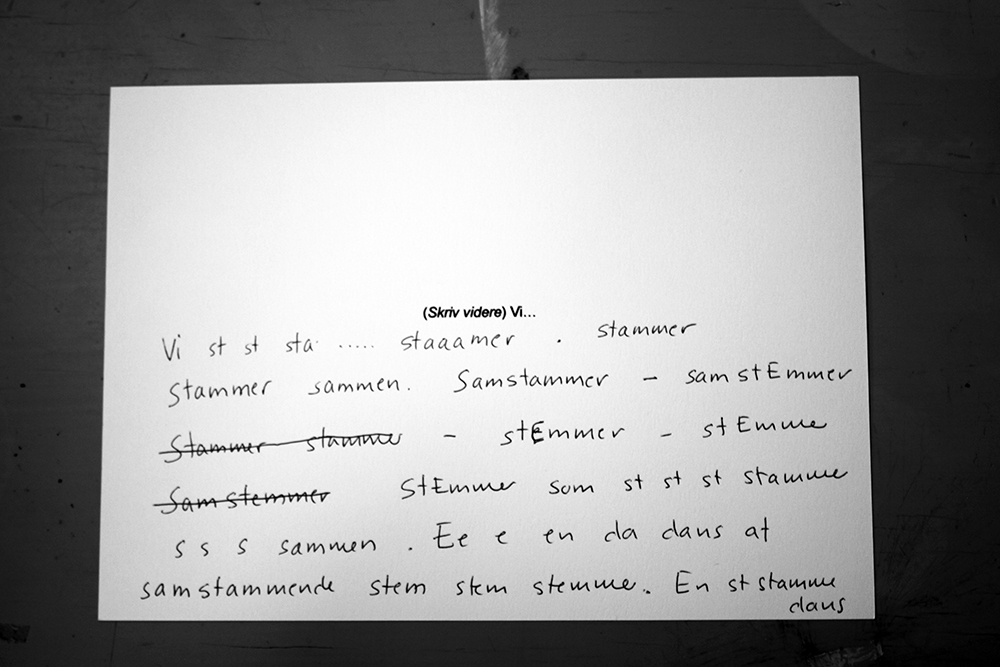 (Skriv videre) Vi...
Vi st st sta ..... staaamer . stammer
Stammer sammen. Samstammer - samstEmmer
Stammer stammer - stEmmer - stEmmer
Samstemmer StEmmer som st st st stammer
s s s sammen . Ee e en da dans at
samstammende stem stem stemme. En st stamme
dans